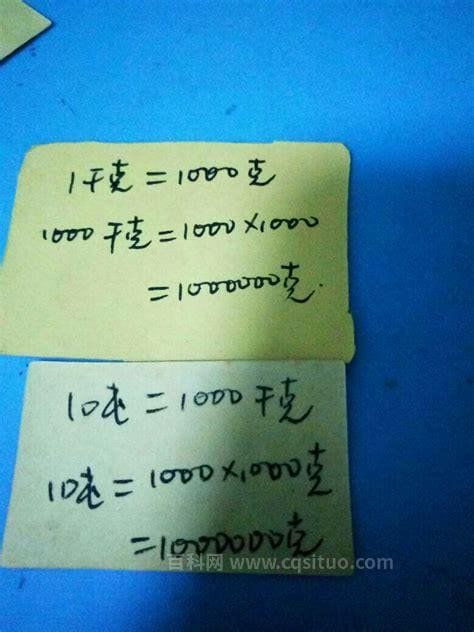 1千克=1000克
1000千克=1000×1000
=1000000克.
10吨=1000千克
10吨=1000×1000克
=1000000克
百科网 www.cqsituo.com